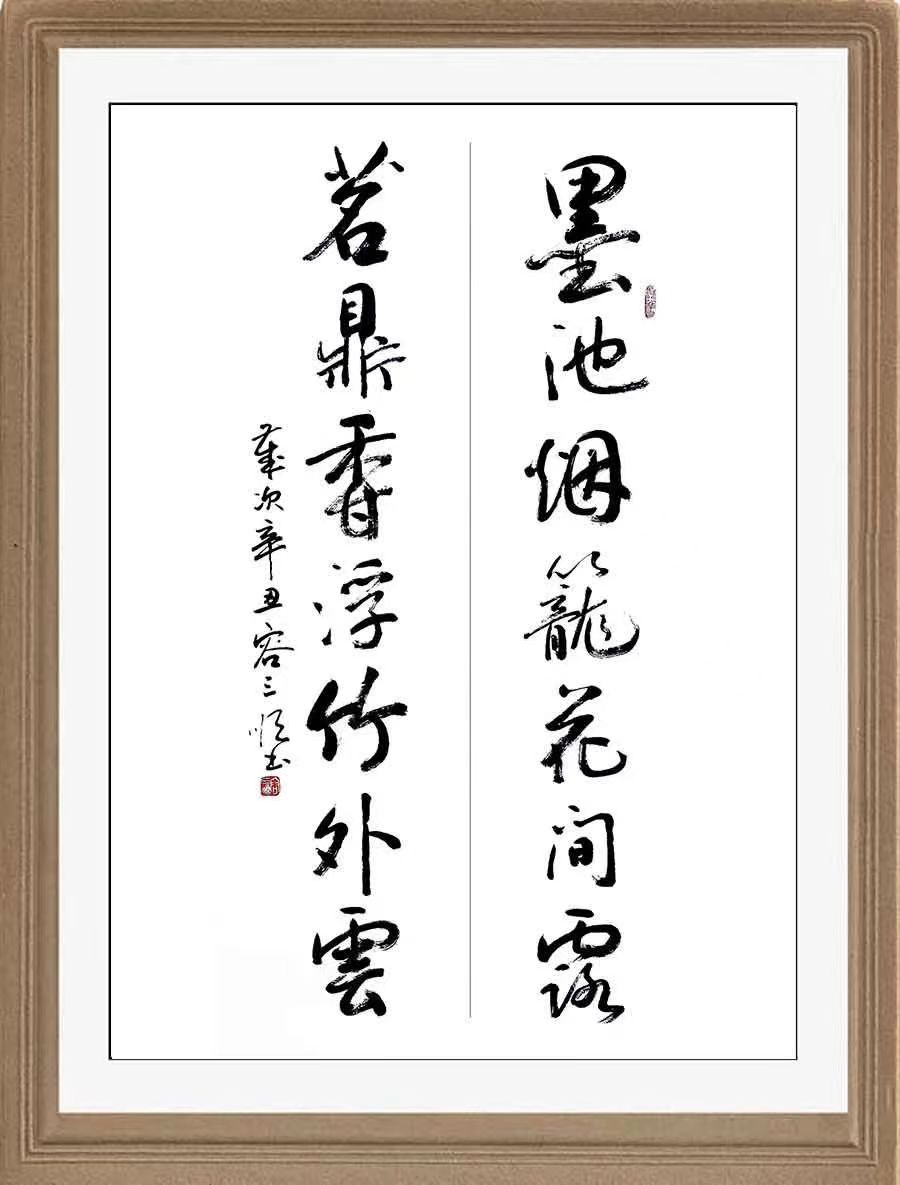 墨池烟籠花间露
茗鼎香浮竹外雲
歲次辛丑容三順书